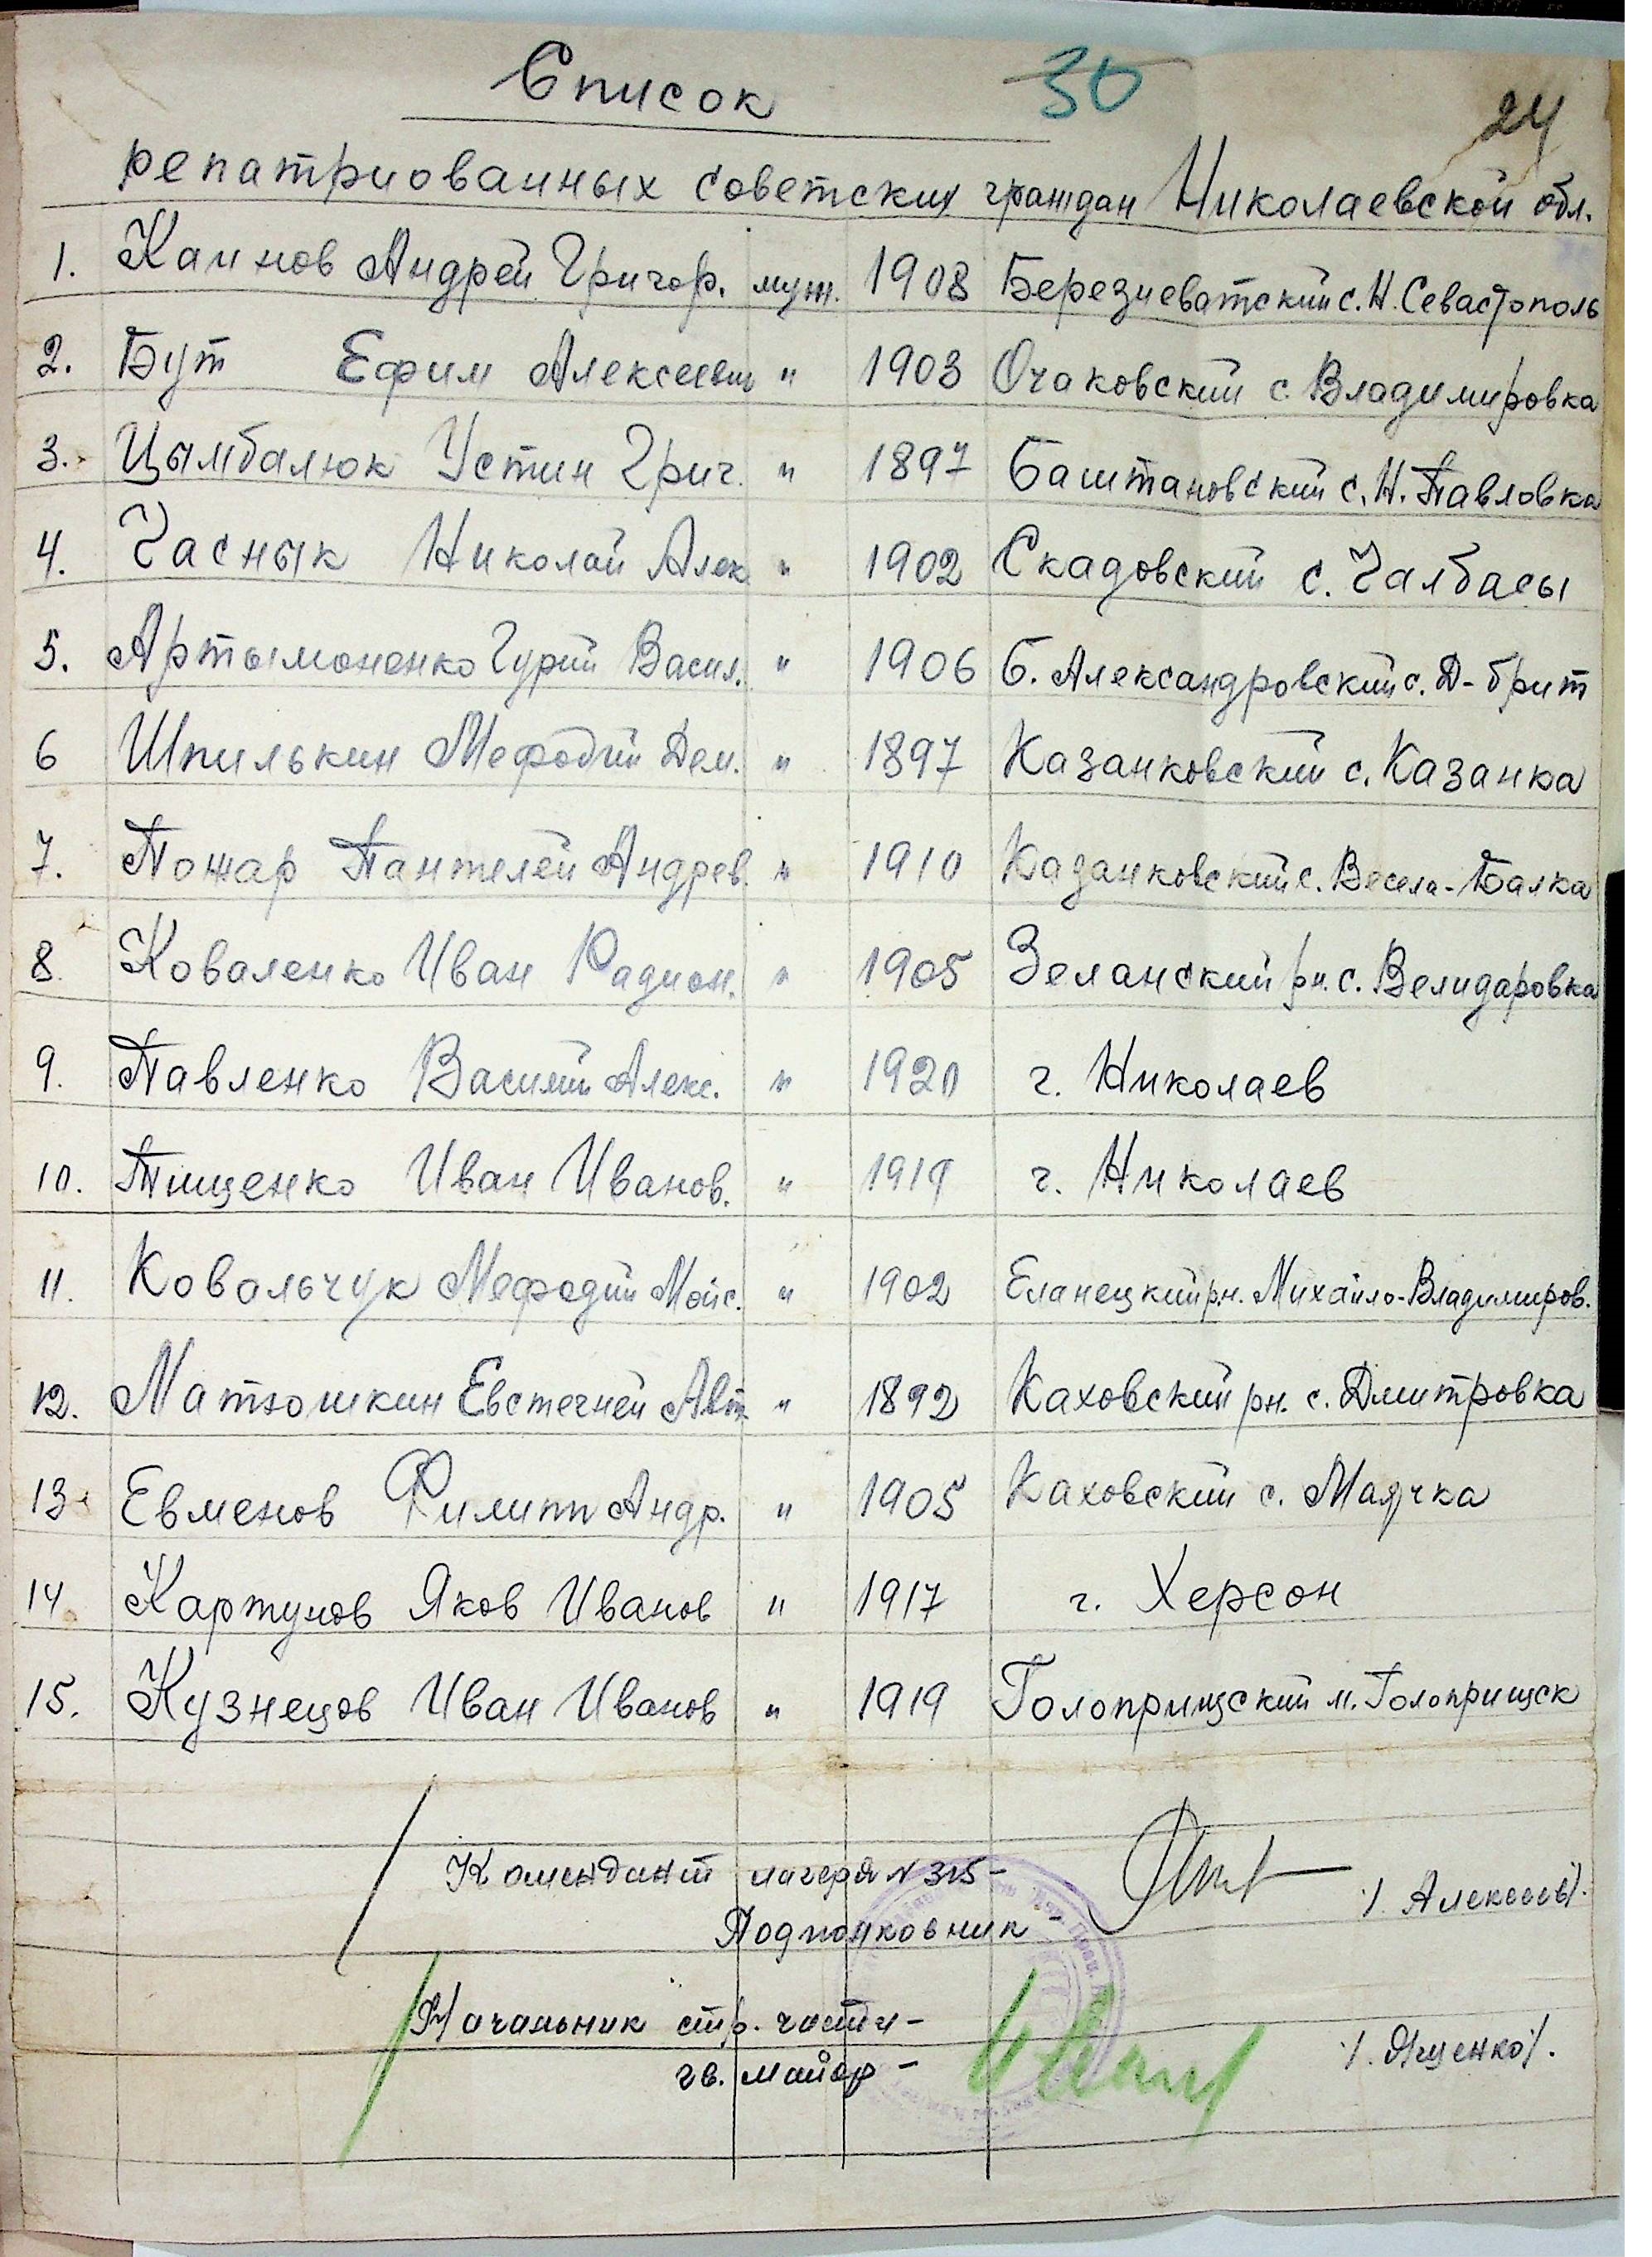 Список
30
24
репатриованных советских граждан Николаевской обл.
1. Каинов Андрей Григор. муж. 1908 Березневатский с. Н. Севастополь
2. Бут Ефим Алексеевич " 1903 Очаковский с. Владимировка
3. Цымбалюк Устин Григ. " 1897 Баштановский с. Н. Павловка
4. Часнык Николай Алек. " 1902 Скадовский с. Чалбасы
5. Артымоненко Гурий Васил. " 1906 Б. Александровский с. Д-брит
6 Шпилькин Мефодий Дем. " 1897 Казанковский с. Казанка
7. Пожар Пантелей Андрев. " 1910 Казанковский с. Весела-Балка
8. Коваленко Иван Радион. " 1905 Зеланский рн. с. Велидаровка
9. Павленко Василий Алекс. " 1920 г. Николаев
10. Тищенко Иван Иванов. " 1919 г. Николаев
11. Ковальчук Мефодий Мойс. " 1902 Еланецкий рн. Михайло-Владимиров.
12. Матюшкин Евстегней Авт. " 1892 Каховский рн. с. Дмитровка
13 Евменов Филипп Андр. " 1905 Каховский с. Маячка
14 Картунов Яков Иванов " 1917 г. Херсон
15. Кузнецов Иван Иванов " 1919 Голоприщский м. Голоприщск
Комендант лагеря N 315-
Подполковник - /. Алексеев/.
Начальник стр. части -
гв. майор - /. Ященко/.